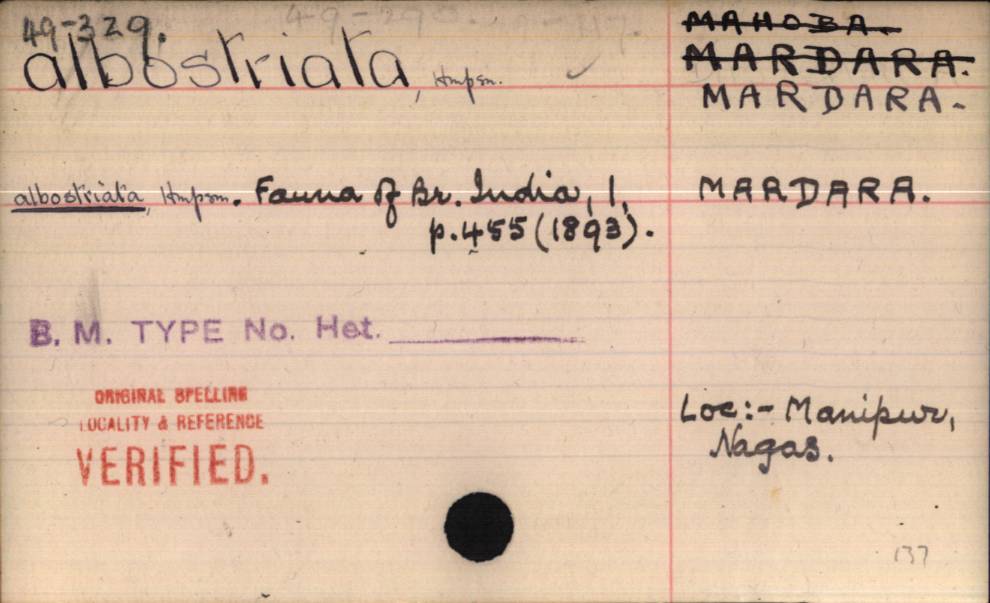 49-329.
MAHOBA.
albostriata, Hmpsn.
MARDARA.
MARDARA.
albostriata, Hmpsn. Fauna of Br. India, 1,
p.455 (1893).
MARDARA.
B. M. TYPE No. Het.
ORIGINAL SPELLING
LOCALITY & REFERENCE
VERIFIED.
Loc:- Manipur,
Nagas.
137